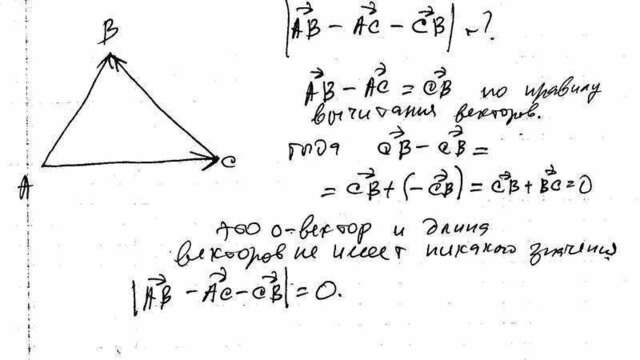 B
|AB⃗ − AC⃗ − CB⃗| - ?
AB⃗ − AC⃗ = CB⃗ по правилу
вычитания векторов.
тогда CB⃗ − CB⃗ =
= CB⃗ + (−CB⃗) = CB⃗ + BC⃗ = 0
A
C
это 0-вектор и длина
векторов не имеет никакого значения
|AB⃗ − AC⃗ − CB⃗| = 0.